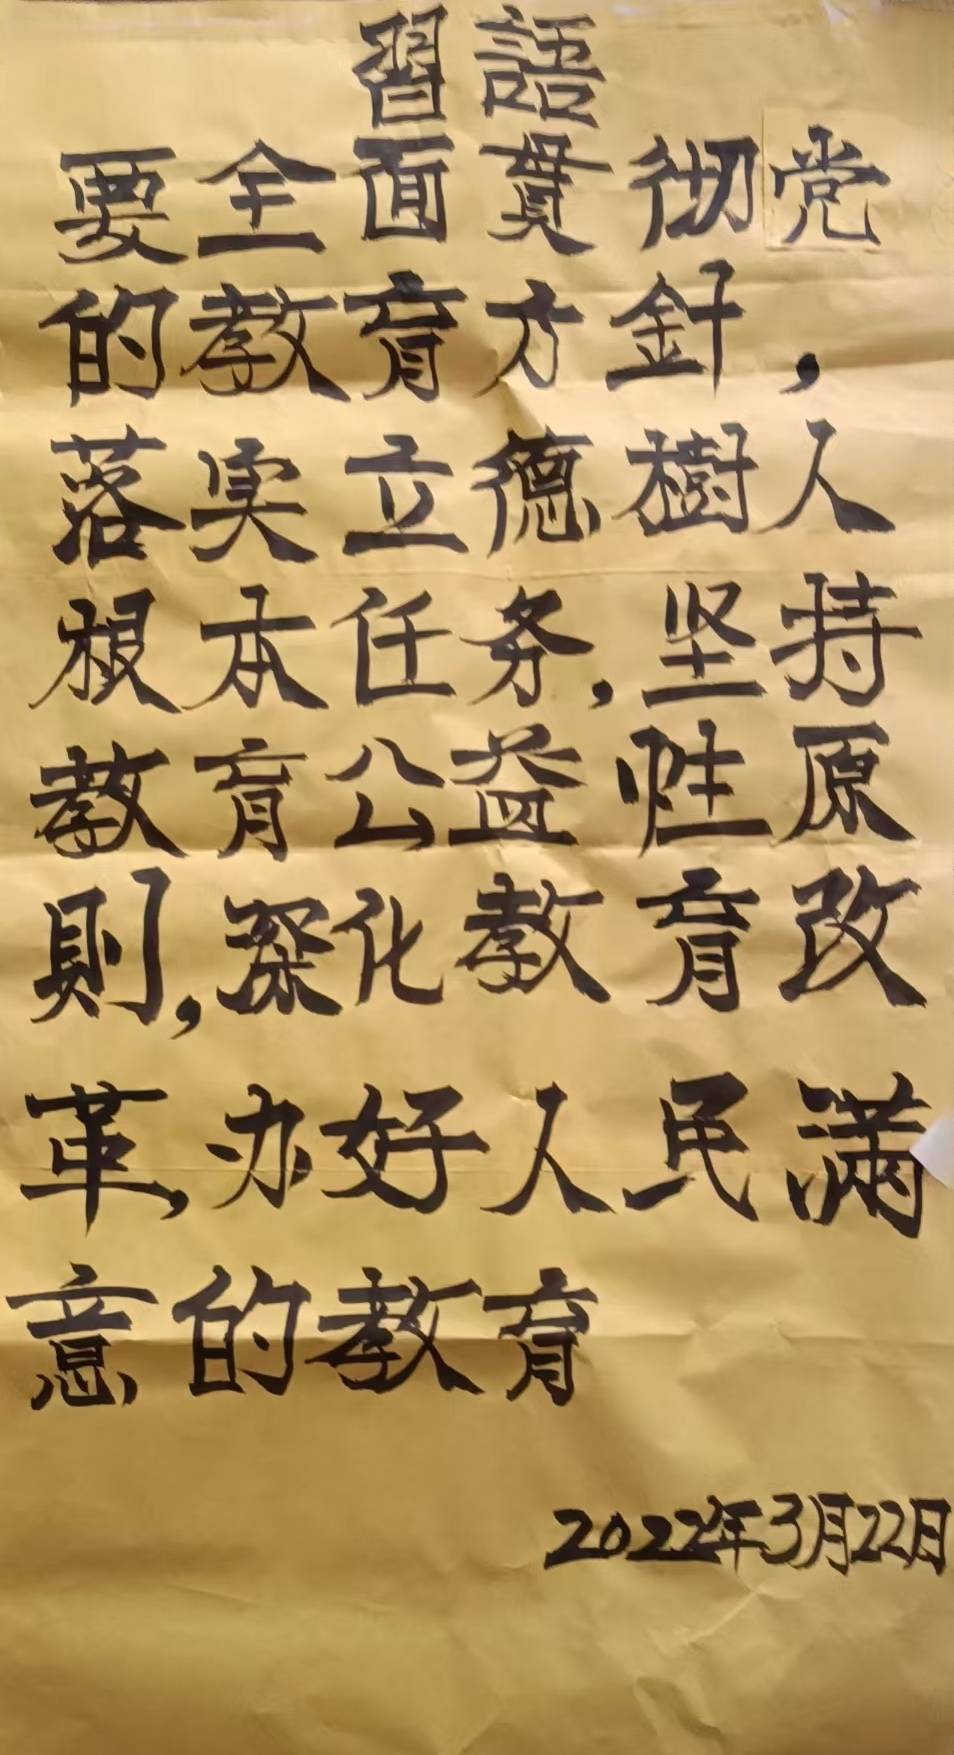 習語
要全面貫彻党
的教育方針，
落实立德樹人
根本任务，坚持
教育公益性原
則，深化教育改
革，办好人民满
意的教育
2022年3月22日